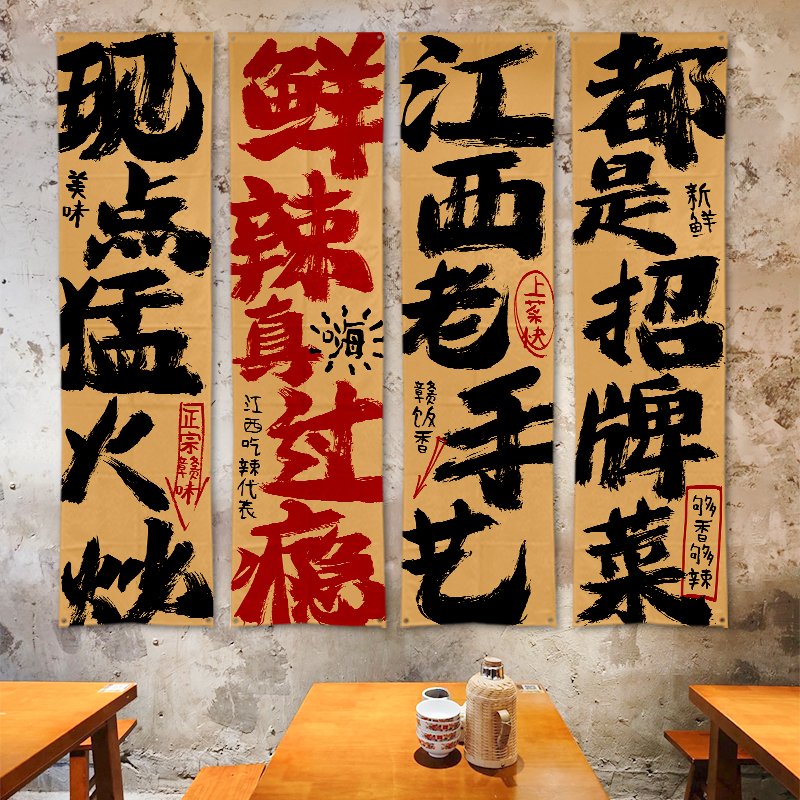 现点猛火炒
美味
正宗赣味
鲜辣真过瘾
嗨
江西吃辣代表
江西老手艺
上菜快
赣饭香
都是招牌菜
新鲜
够香够辣